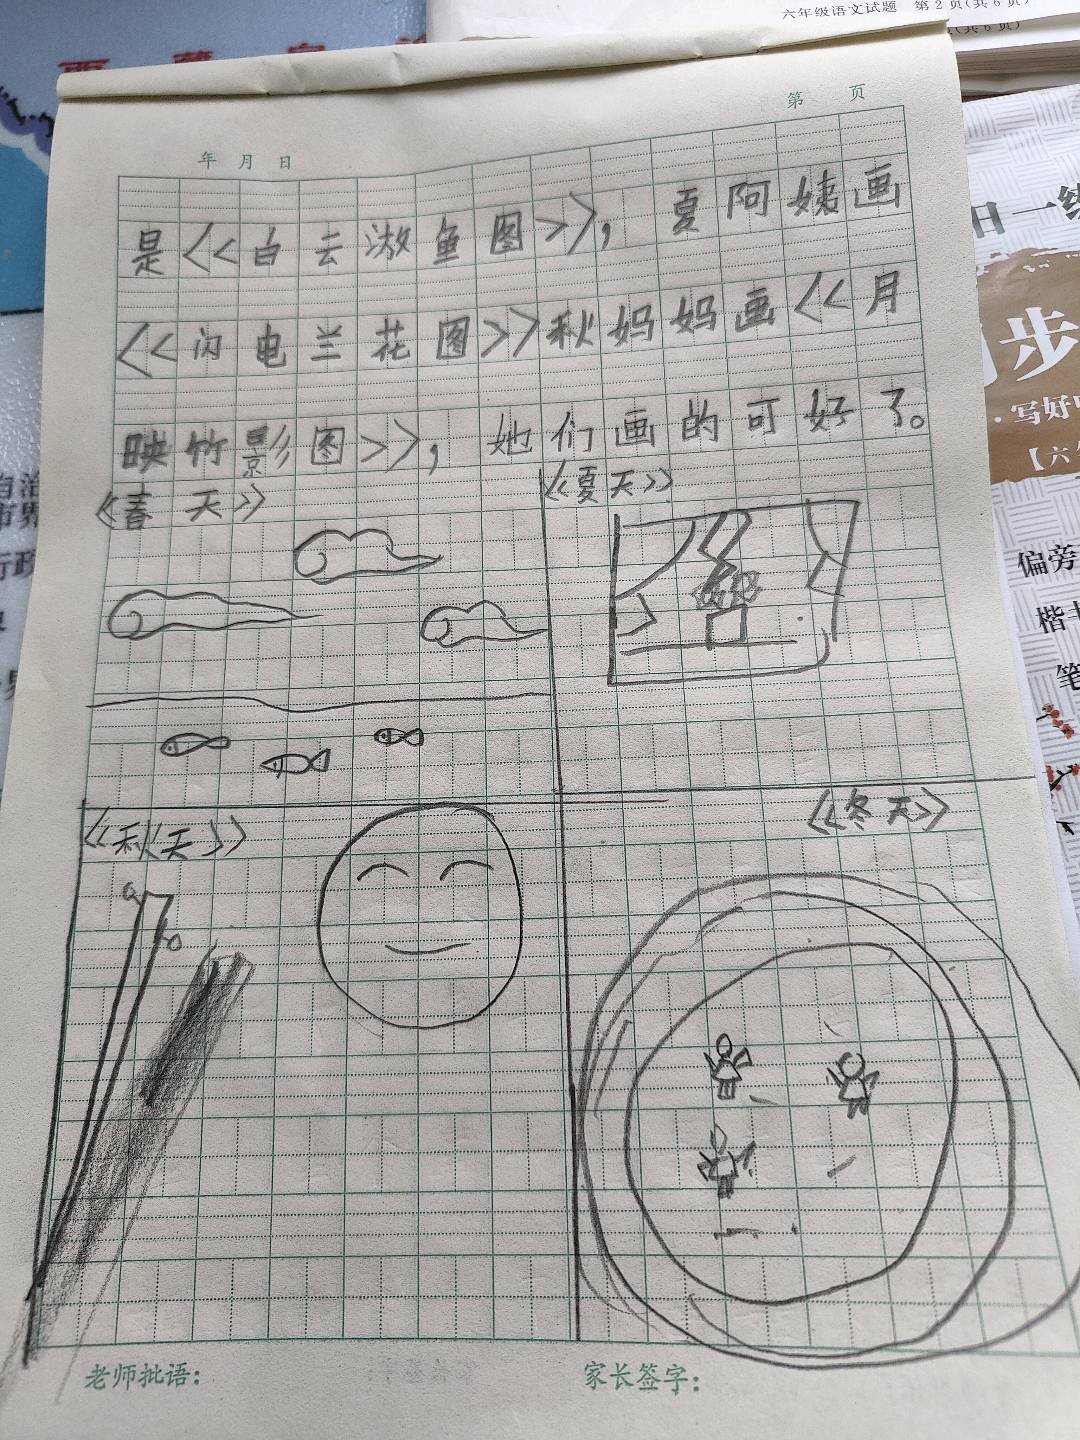 六年级语文试题 第2页(共6页)
(共6页)
第 页
年 月 日
是<<白云游鱼图>>，夏阿姨画
<<闪电兰花图>>秋妈妈画<<月
映竹影图>>，她们画的可好了。
<<春天>>
<<夏天>>
<<秋天>>
<<冬天>>
老师批语：
家长签字：
日一练
步
写好中
【六年
偏旁
楷书
笔
自治
市界
行政
界